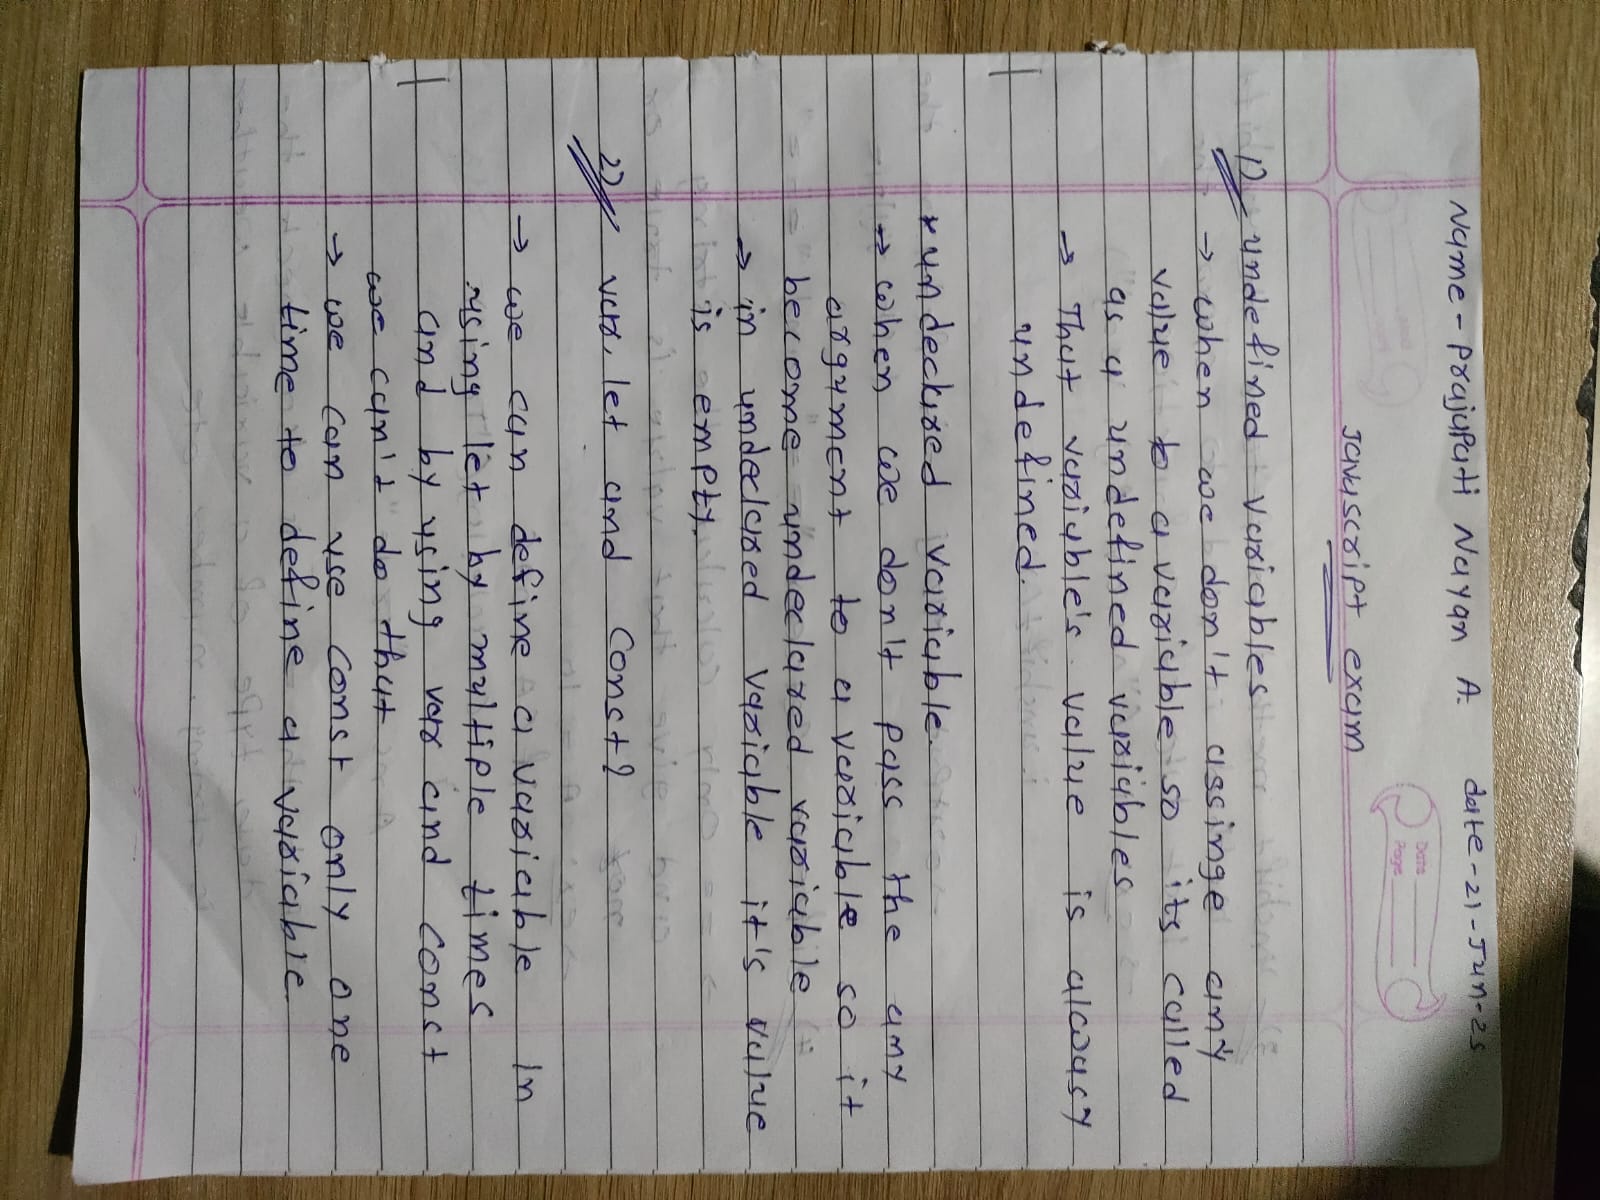 Name - Prajapati Nayan A. date - 21 - Jun - 25
Javascript exam
Date
Page
1) undefined variables
→ when we don't assinge any
value to a variable so its called
as a undefined variables
→ That variable's value is alwasy
undefined.
* undeclared variable.
→ when we don't pass the any
argument to a variable so it
become undeclared variabile
→ in undeclared variable it's value
is empty.
2) var, let and Const?
→ we can define a variable in
using let by multiple times
and by using var and const
we can't do that
→ we can use const only one
time to define a variable.